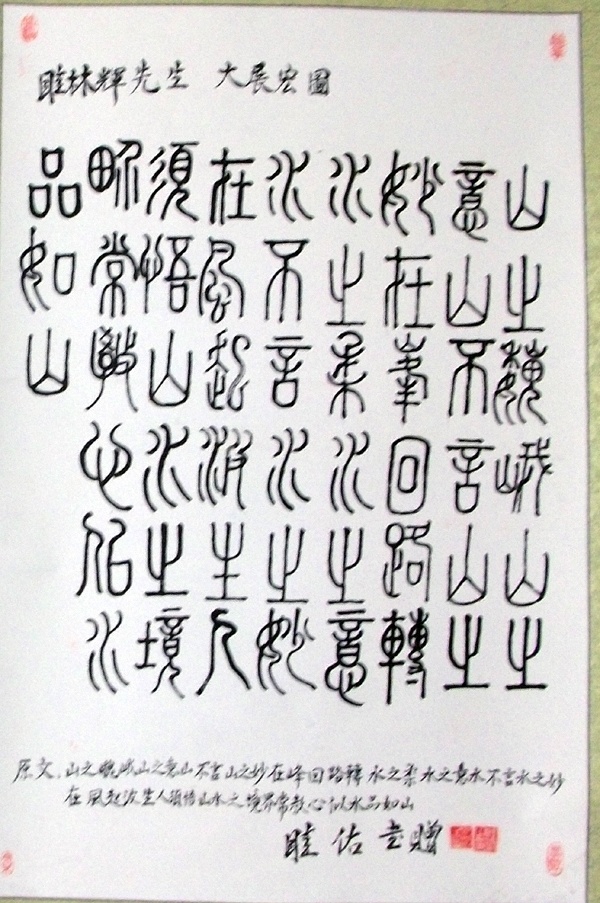 眭林輝先生 大展宏圖
山之巍峨山之
意山不言山之
妙在峯回路轉
水之柔水之意
水不言水之妙
在風起波生人
須悟山水之境
畍常教心佀水
品如山
原文.山之巍峨山之意山不言山之妙在峰回路轉水之柔水之意水不言水之妙
在風起波生人須悟山水之境界常教心似水品如山
眭佑 贈